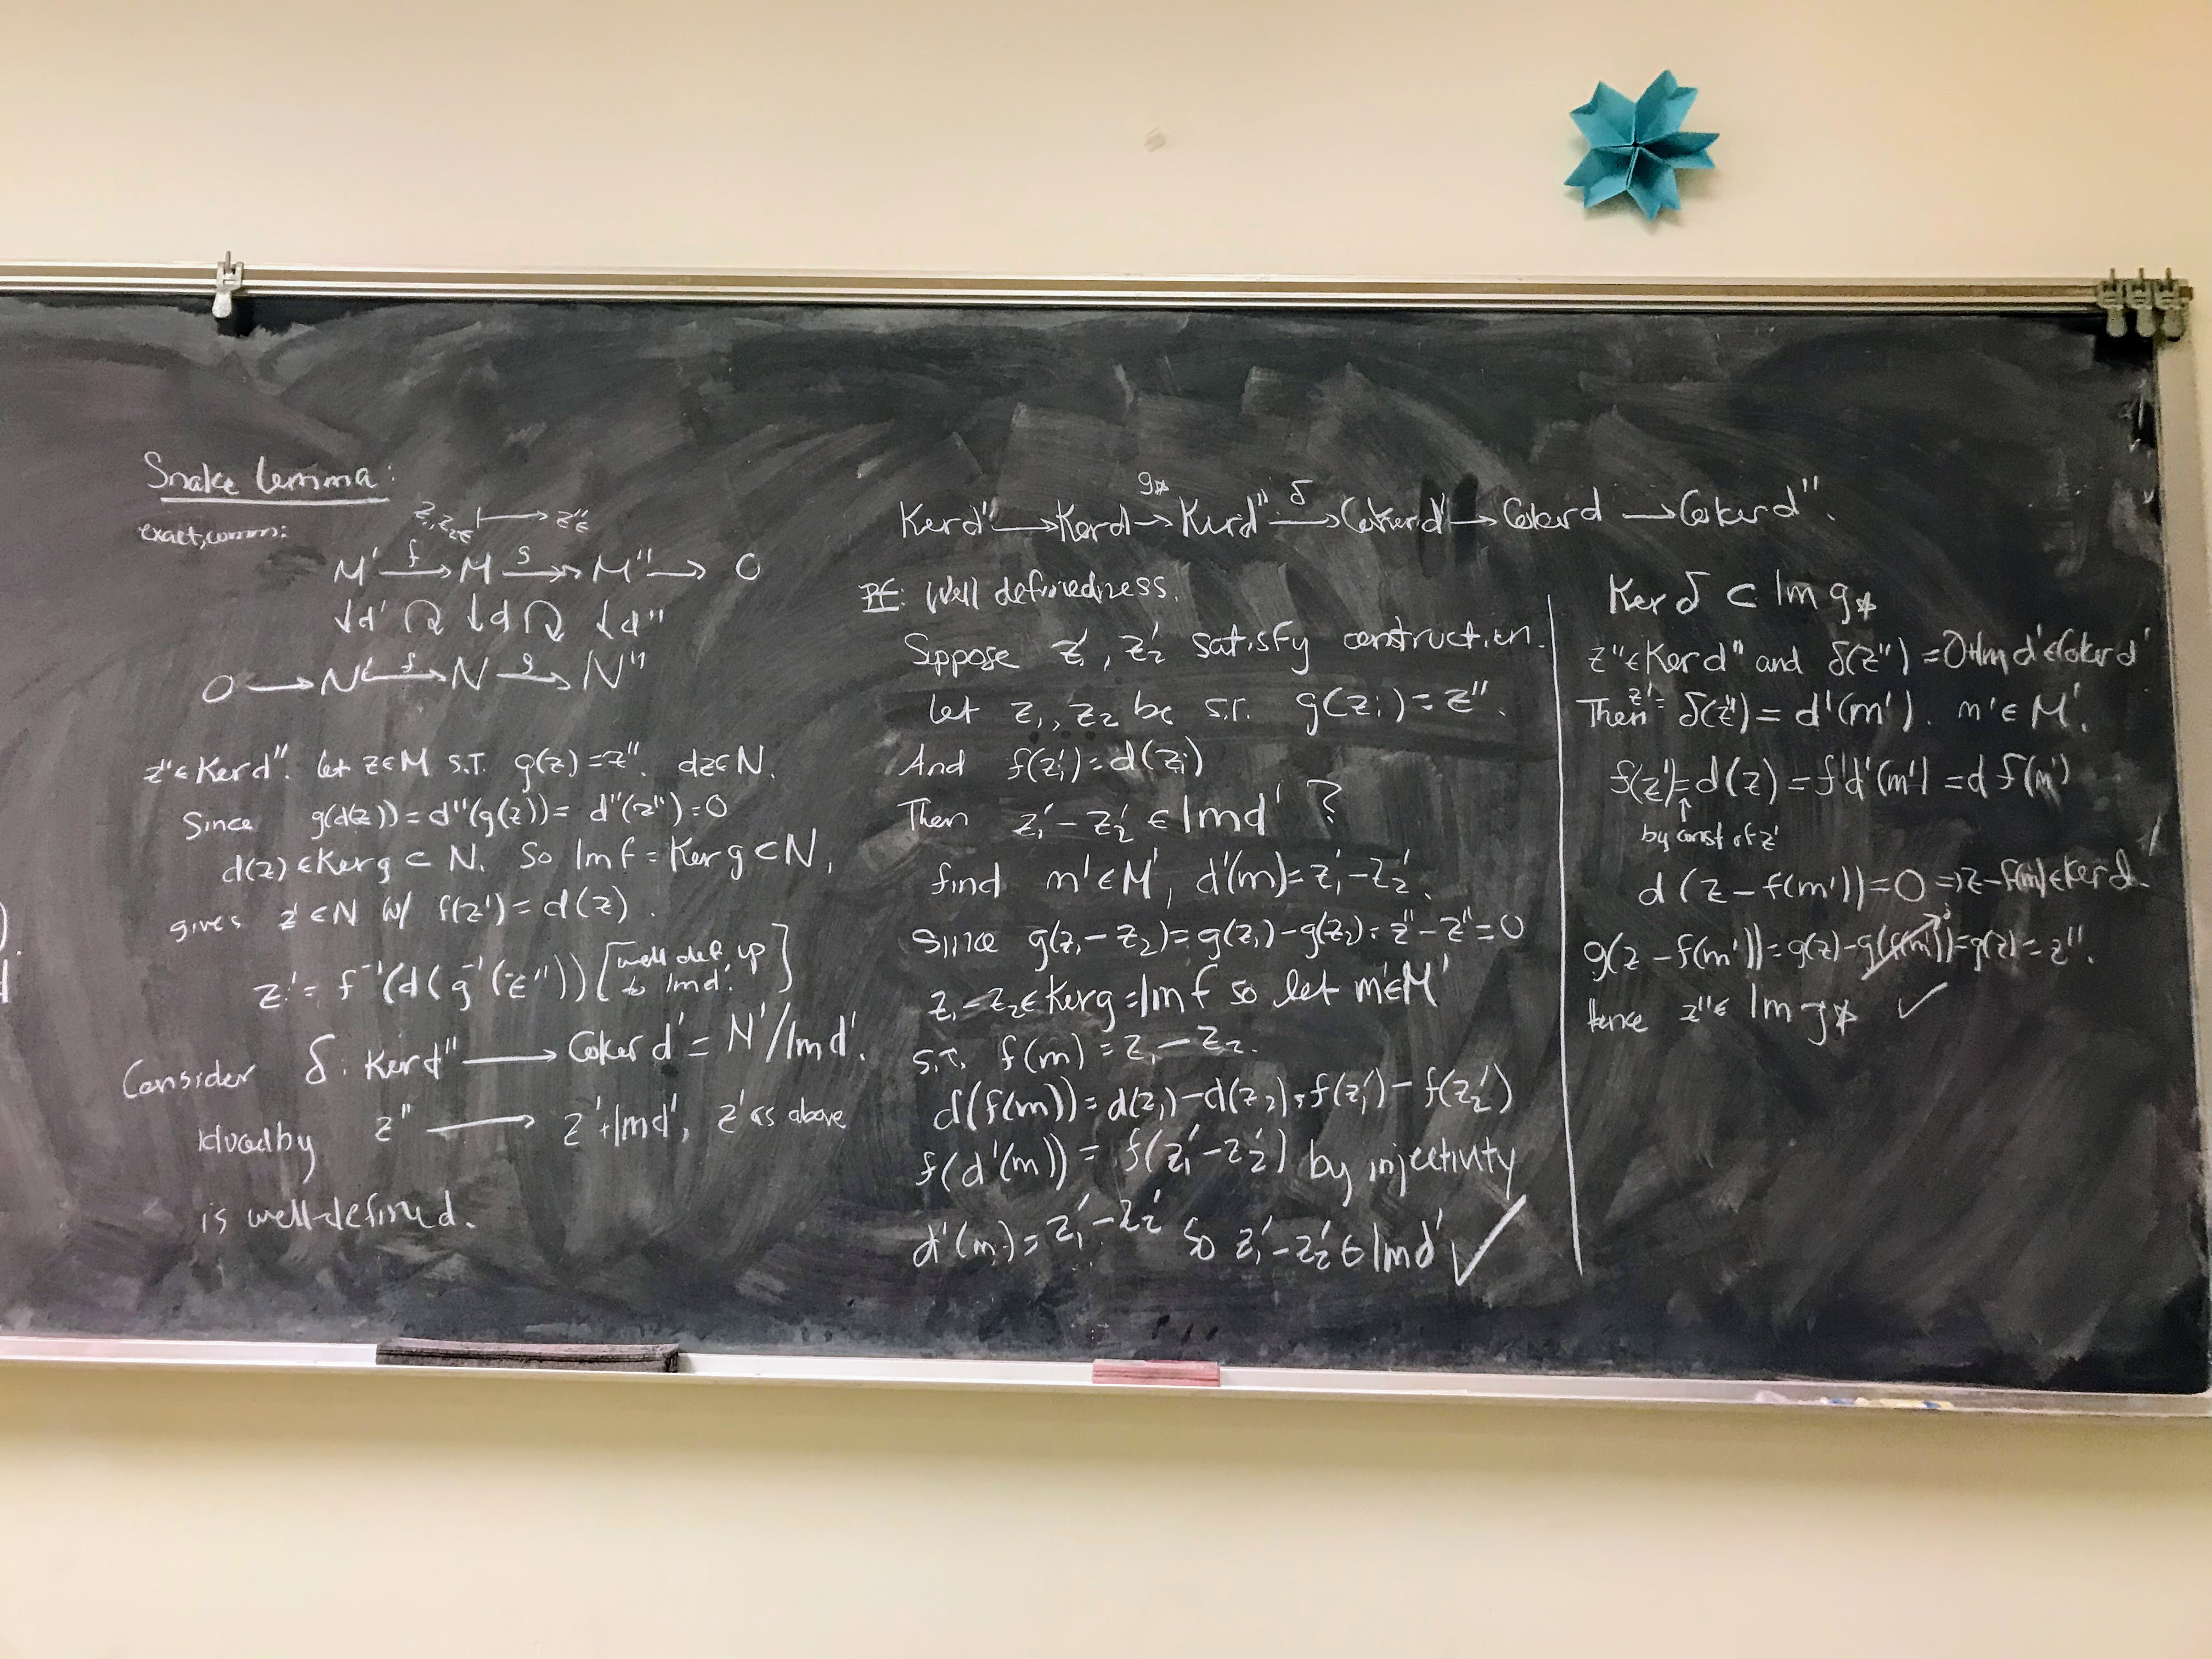 Snake Lemma:
exact, comm:
z₁, z₂ ∈ ⟼ z″ ∈
M′ —f→ M —g↠ M″ → 0
↓d′ ↷ ↓d ↷ ↓d″
0 → N′ —f→ N —g→ N″
z″ ∈ Ker d″. Let z∈M s.t. g(z) = z″. dz∈N.
Since g(d(z)) = d″(g(z)) = d″(z″) = 0
d(z) ∈ Ker g ⊂ N. So Im f = Ker g ⊂ N,
gives z′ ∈ N w/ f(z′) = d(z).
z′ = f⁻¹(d(g⁻¹(z″))) [well def. up
to Im d′.]
Consider δ: Ker d″ ⟶ Coker d′ = N′/Im d′.
z″ ⟶ z′ + Im d′, z′ as above
is well-defined.
g⋆ δ
Ker d″ → Ker d → Ker d″ → Coker d′ → Coker d → Coker d″.
Pf: Well definedness.
Suppose z₁′, z₂′ satisfy construction.
Let z₁, z₂ be s.t. g(zᵢ) = z″.
And f(zᵢ′) = d(zᵢ)
Then z₁′ − z₂′ ∈ Im d′ ?
find m′ ∈ M′, d′(m) = z₁′ − z₂′.
Since g(z₁ − z₂) = g(z₁) − g(z₂) = z″ − z″ = 0
z₁ − z₂ ∈ Ker g = Im f so let m ∈ M′
s.t. f(m) = z₁ − z₂.
d(f(m)) = d(z₁) − d(z₂) = f(z₁′) − f(z₂′)
f(d′(m)) = f(z₁′ − z₂′) by injectivity
d′(m) = z₁′ − z₂′ so z₁′ − z₂′ ∈ Im d′ ✓
Ker δ ⊂ Im g⋆
z″ ∈ Ker d″ and δ(z″) = 0 + Im d′ ∈ Coker d′
Then z′ = δ(z″) = d′(m′). m′ ∈ M′.
f(z′) = d(z) = f d′(m′) = d f(m′)
↑
by const of z′
d(z − f(m′)) = 0 ⇒ z − f(m′) ∈ Ker d.
g(z − f(m′)) = g(z) − g(f(m′)) = g(z) = z″.
Hence z″ ∈ Im g⋆ ✓